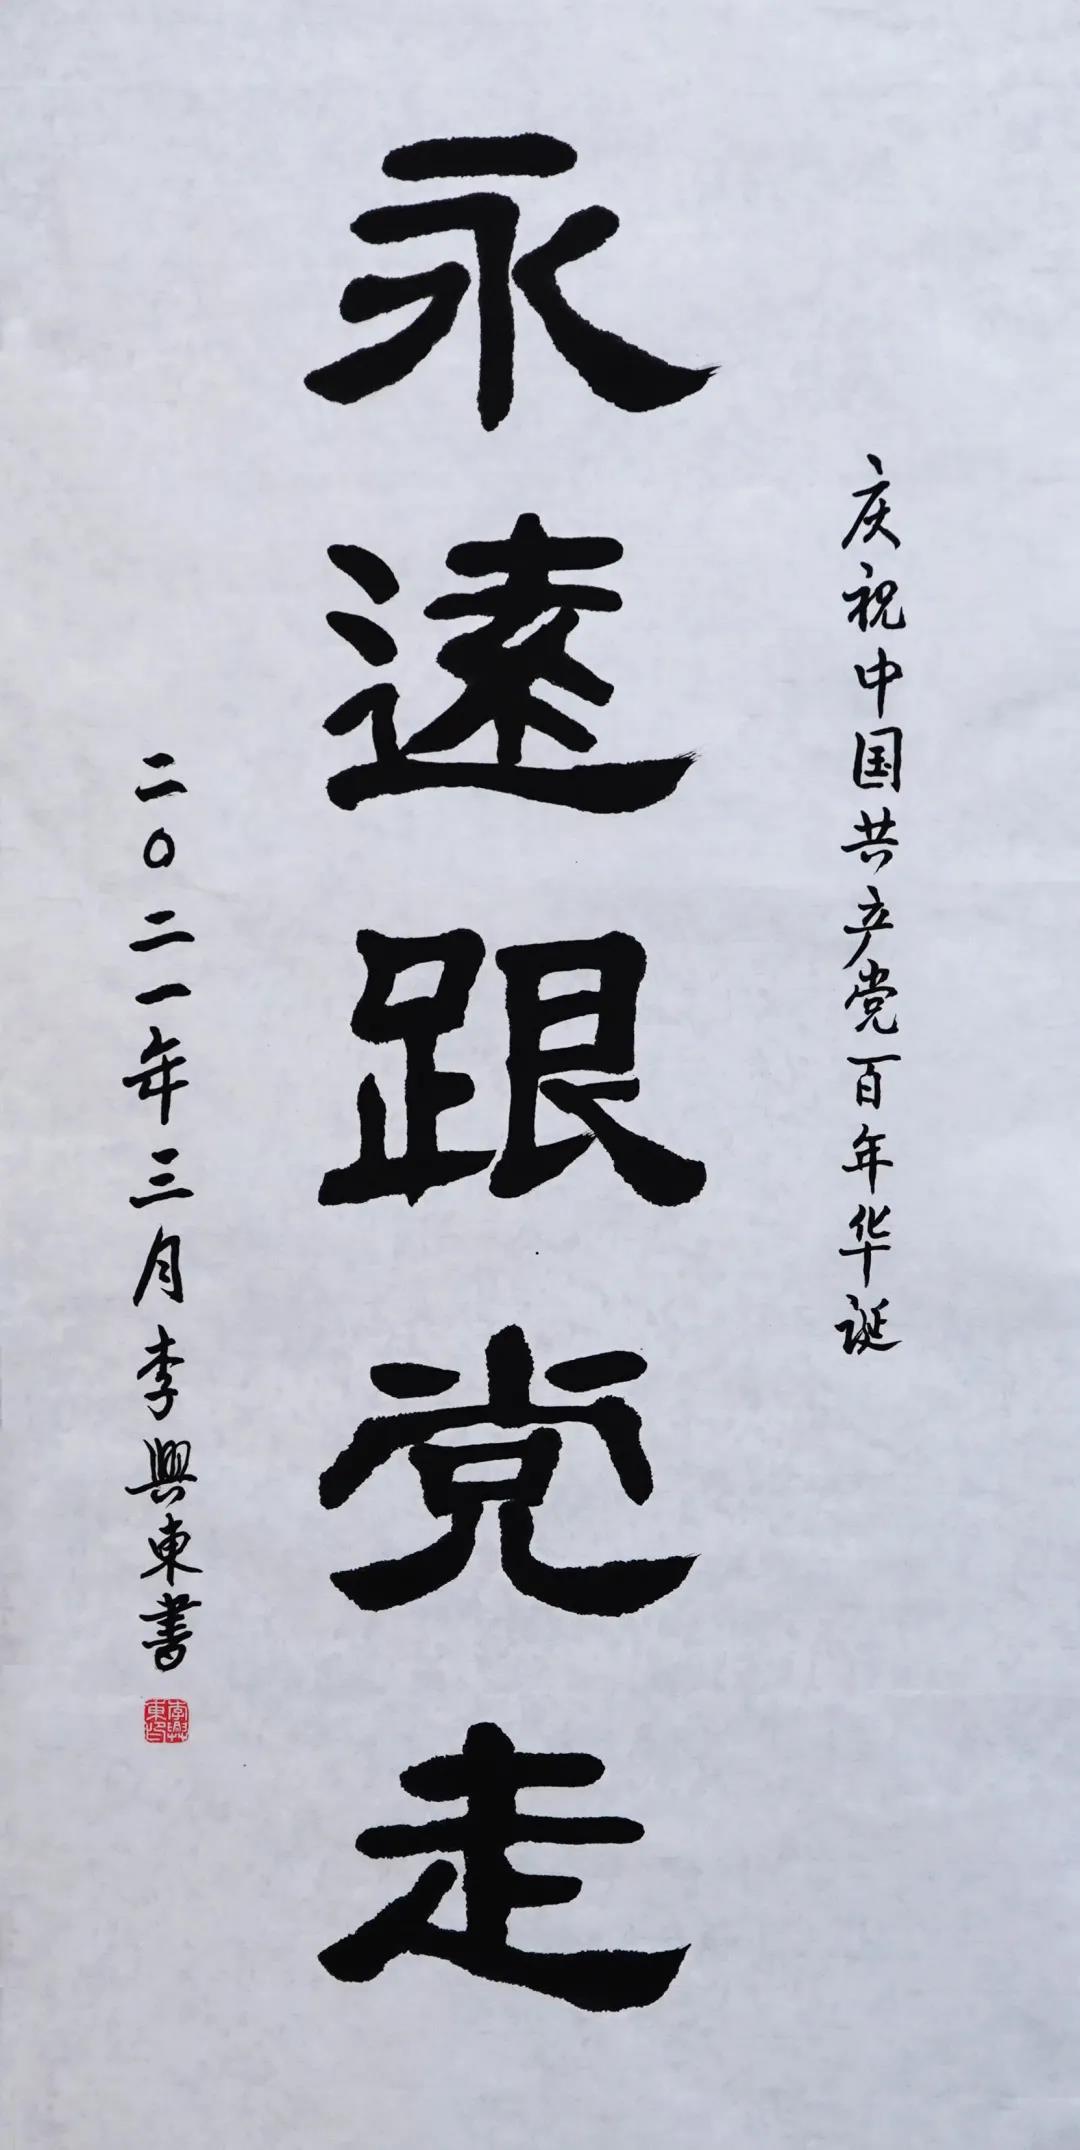 庆祝中国共产党百年华诞
永遠跟党走
二〇二一年三月李興東書
李興東印